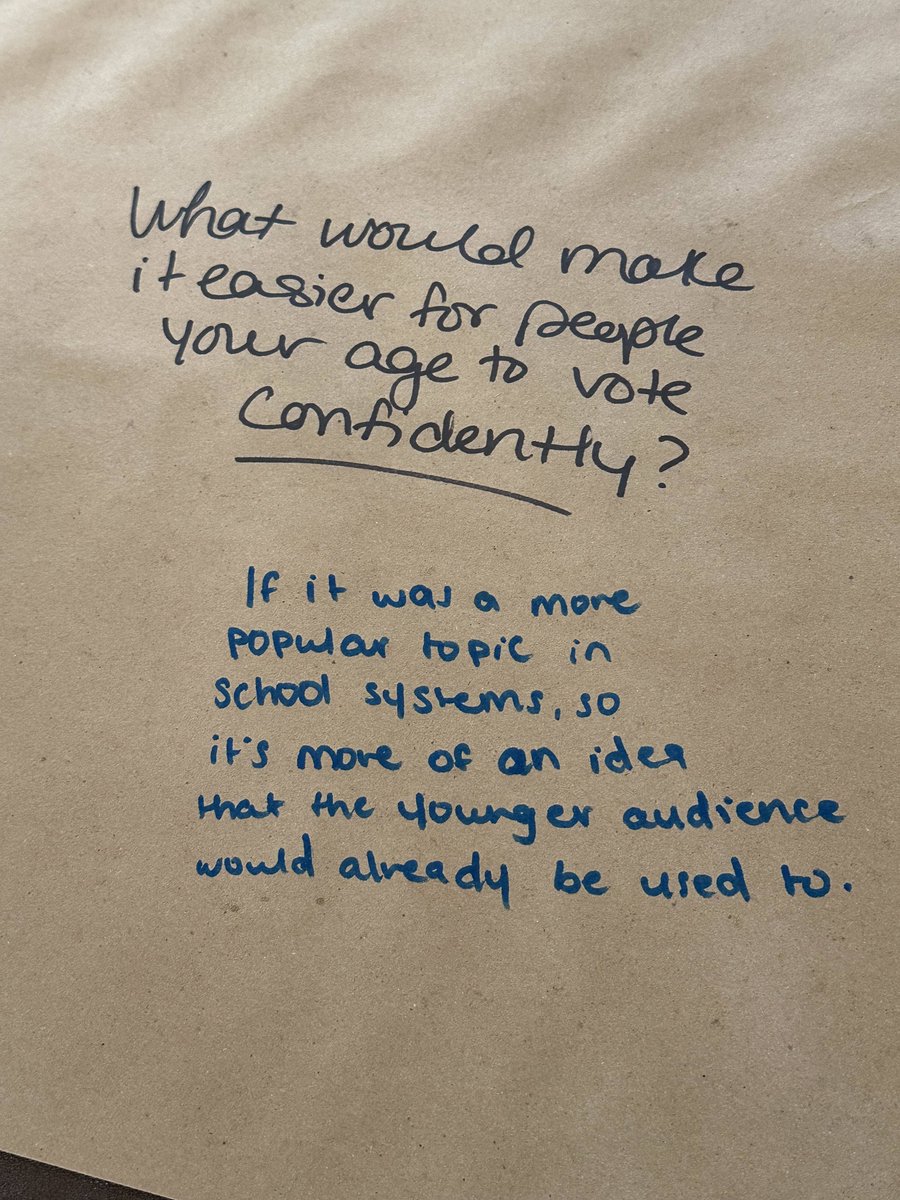 What would make
it easier for people
your age to vote
confidently?
If it was a more
popular topic in
school systems, so
it's more of an idea
that the younger audience
would already be used to.